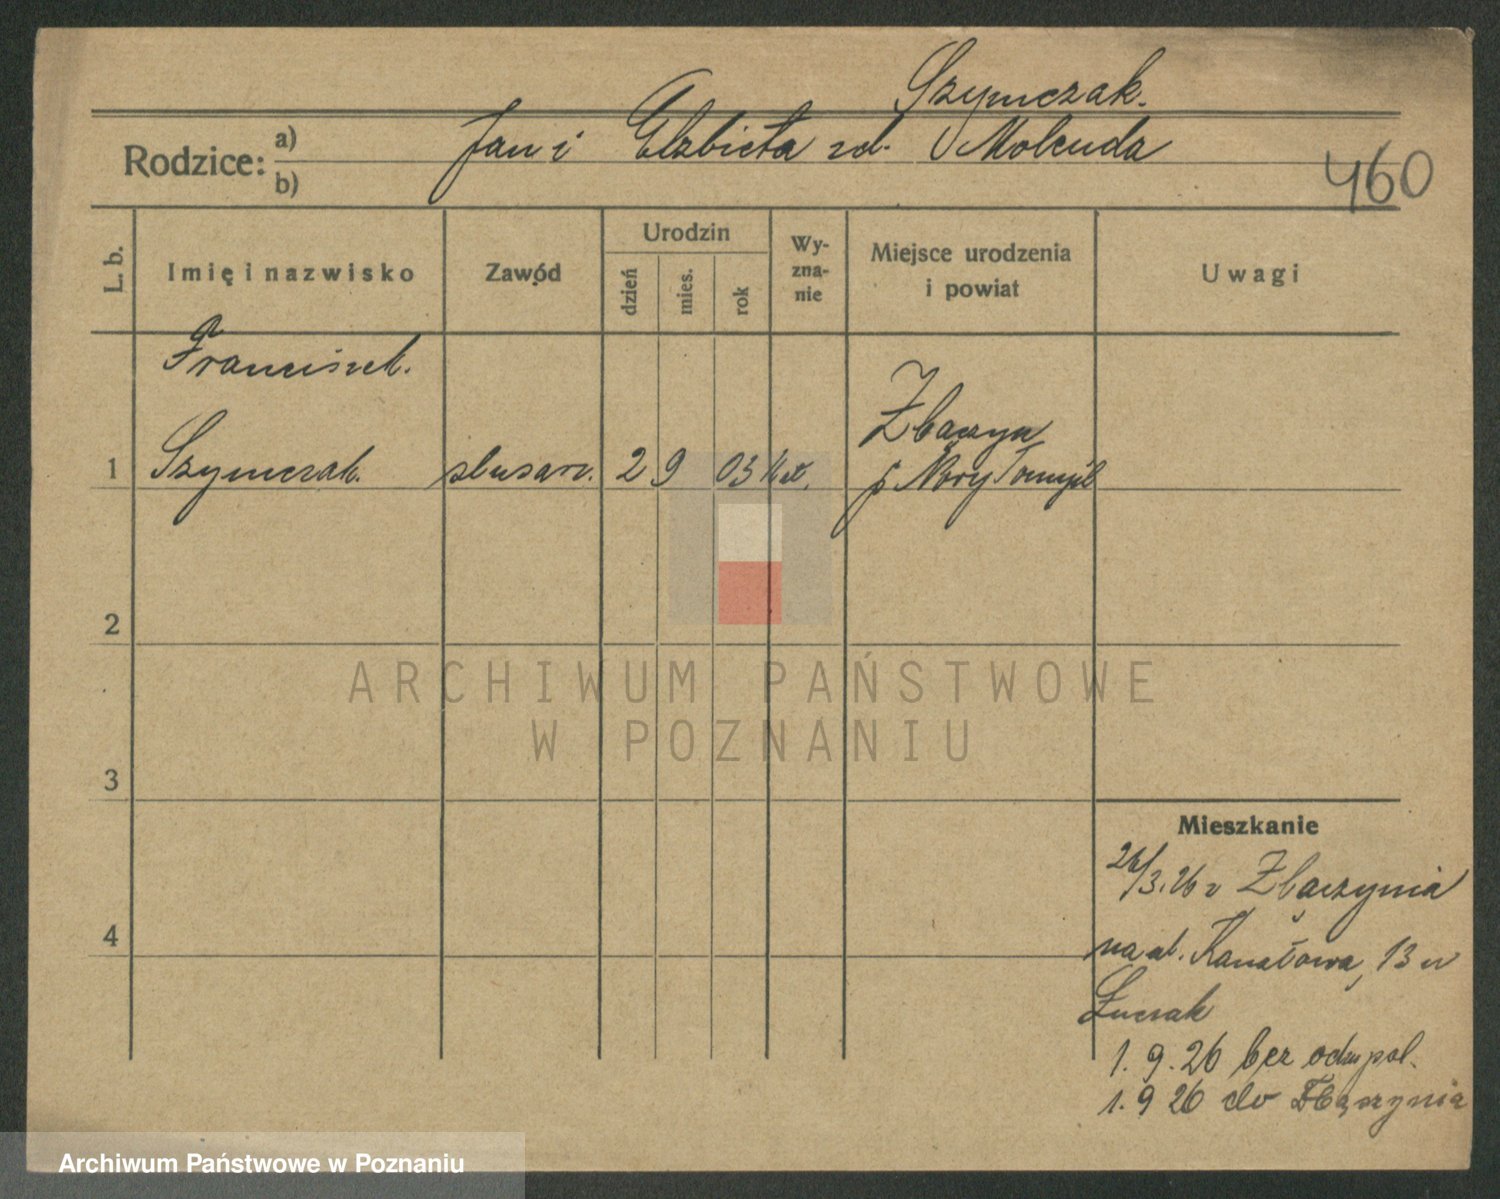 Szymczak.
Rodzice: a) b) Jan i Elzbieta zd. Molenda
460
L. b.
Imię i nazwisko
Zawód
Urodzin
dzień
mies.
rok
Wy-
zna-
nie
Miejsce urodzenia
i powiat
Uwagi
Franciszek.
1 Szymczak. slusarz. 2 9 03 kat. Zbąszyn
p Nowy Tomyśl
2
3
4
ARCHIWUM PAŃSTWOWE
W POZNANIU
Mieszkanie
26/3.26 z Zbąszynia
na ul. Kanałowa, 13 u
Łuczak
1.9.26 bez pol.
1.9 26 do Zbąszynia
Archiwum Państwowe w Poznaniu